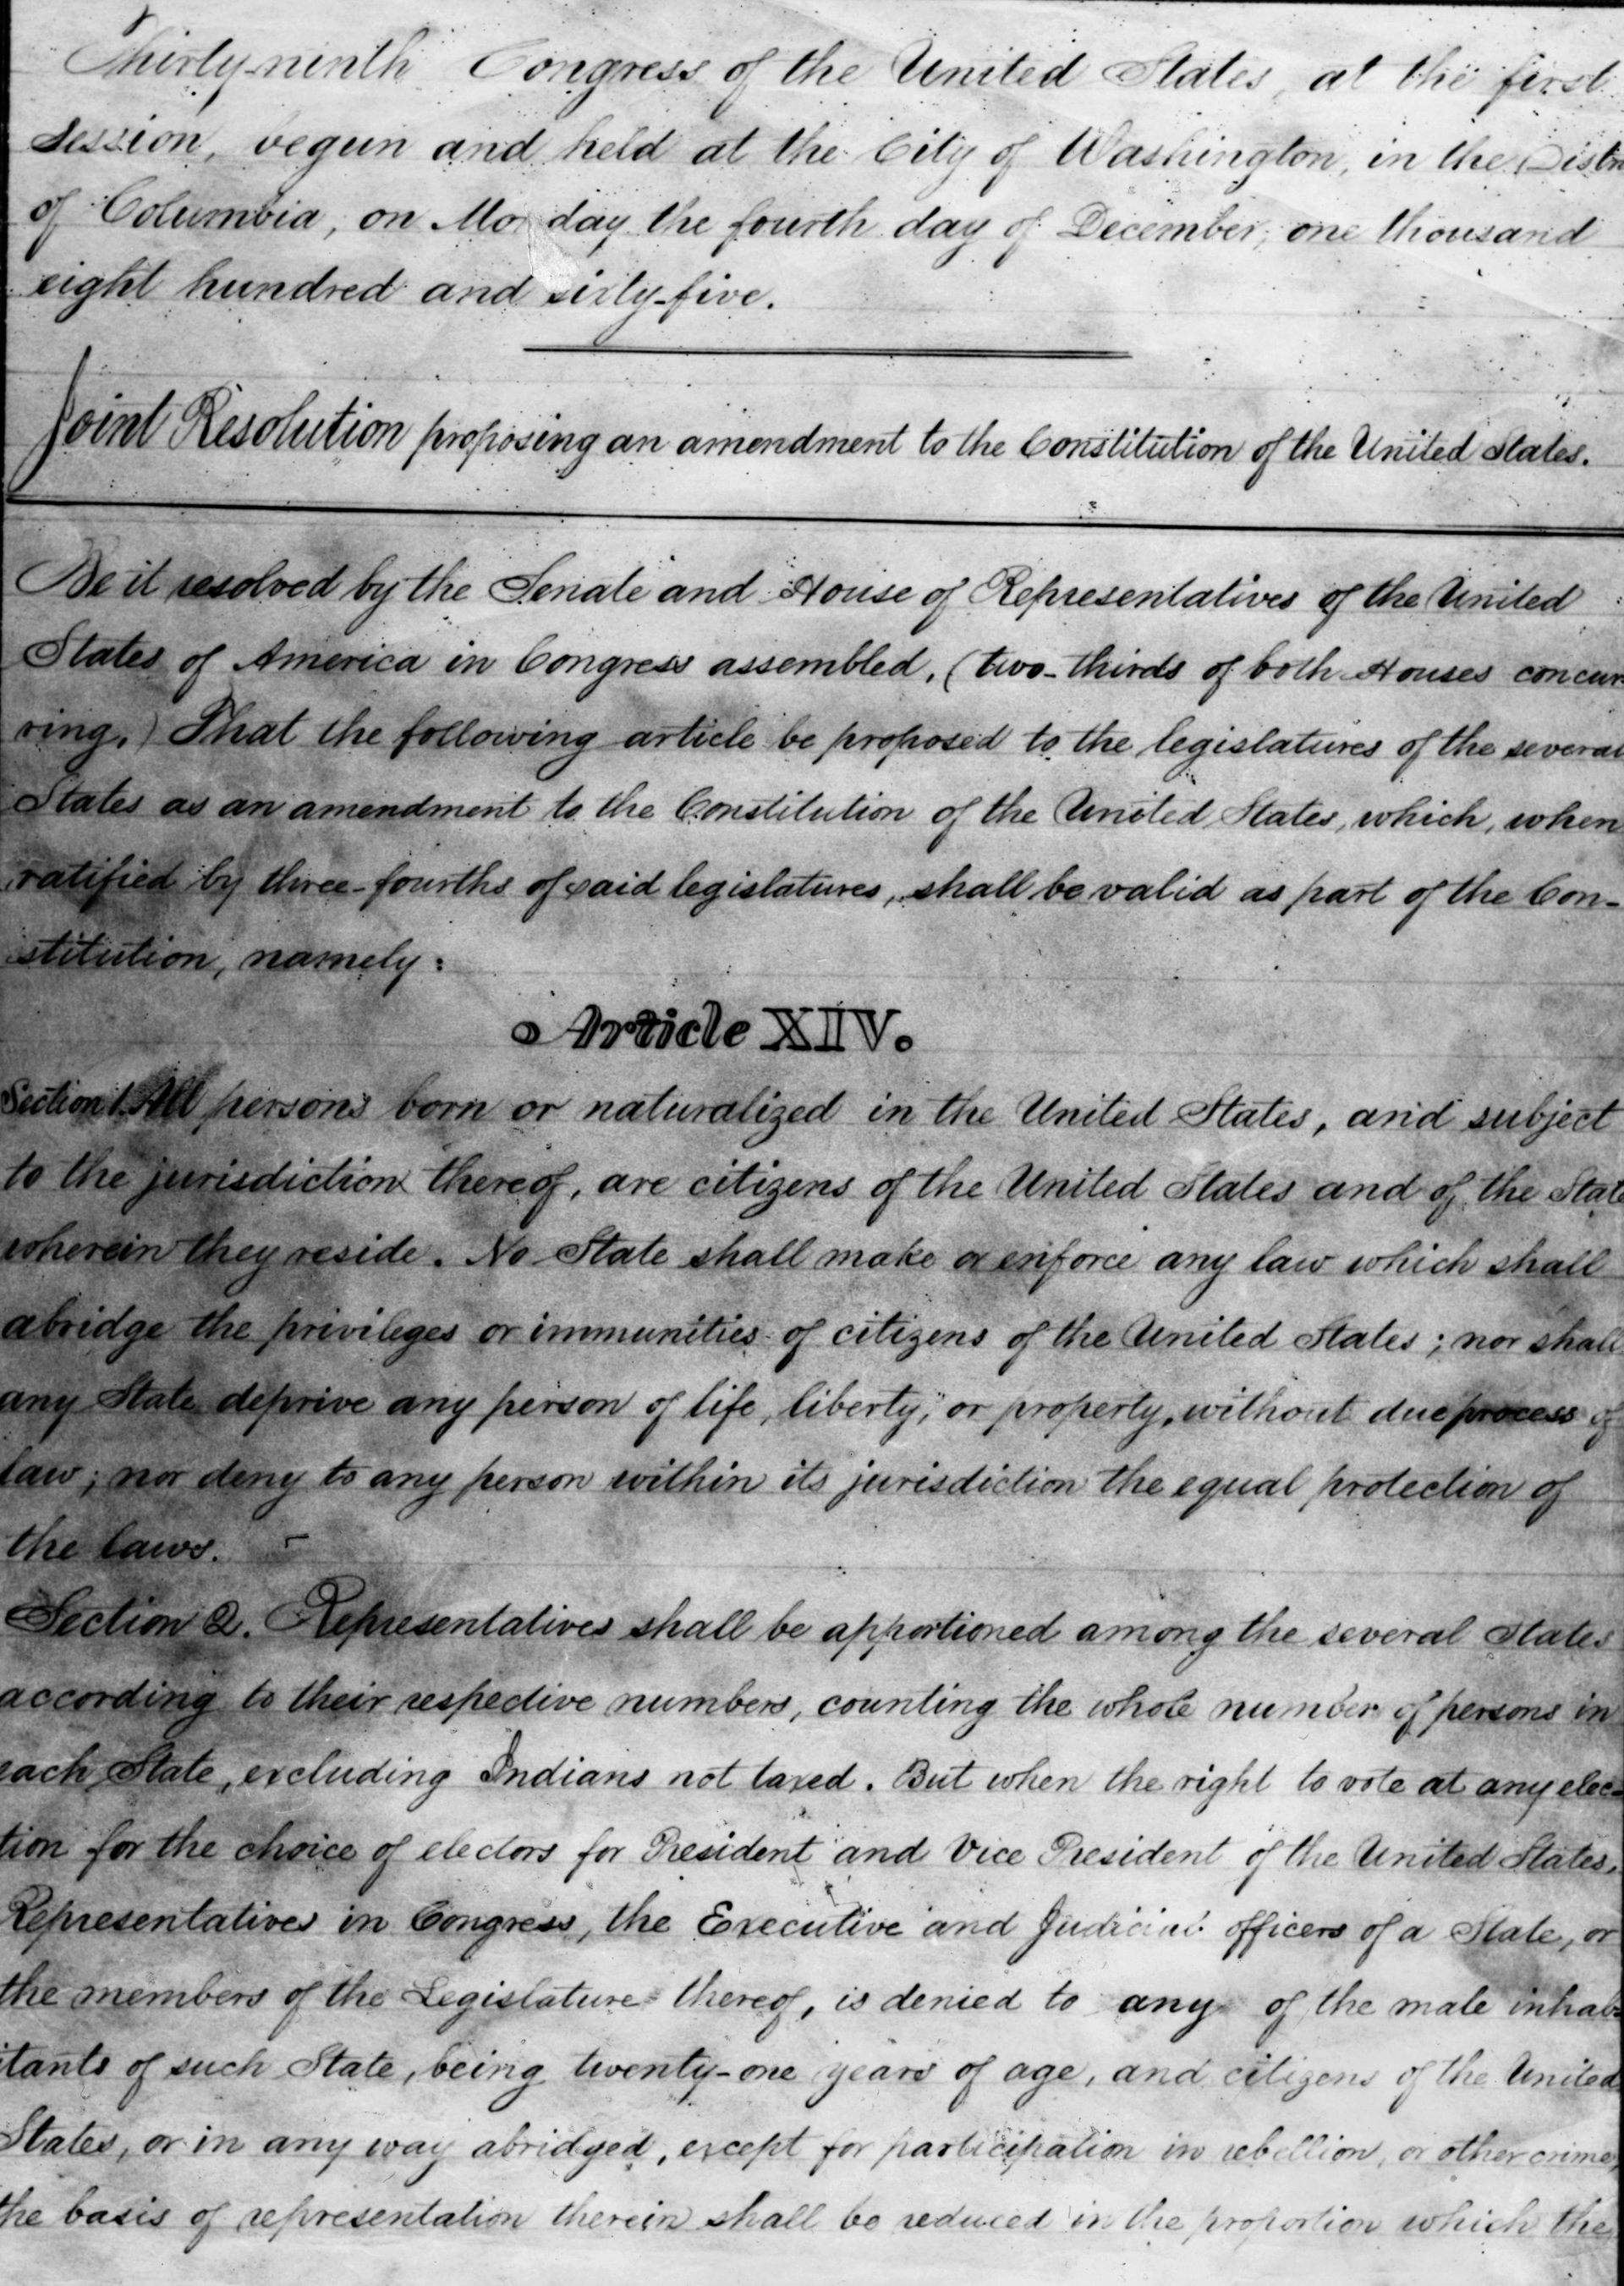 Thirty-ninth Congress of the United States, at the first
Session, begun and held at the City of Washington, in the Distri
of Columbia, on Monday the fourth day of December, one thousand
eight hundred and sixty-five.
Joint Resolution proposing an amendment to the Constitution of the United States.
Be it resolved by the Senate and House of Representatives of the United
States of America in Congress assembled, (two-thirds of both Houses concur
ring,) That the following article be proposed to the legislatures of the several
States as an amendment to the Constitution of the United States, which, when
ratified by three-fourths of said legislatures, shall be valid as part of the Con-
stitution, namely:
Article XIV.
Section 1. All persons born or naturalized in the United States, and subject
to the jurisdiction thereof, are citizens of the United States and of the State
wherein they reside. No State shall make or enforce any law which shall
abridge the privileges or immunities of citizens of the United States; nor shall
any State deprive any person of life, liberty, or property, without due process of
law; nor deny to any person within its jurisdiction the equal protection of
the laws.
Section 2. Representatives shall be apportioned among the several States
according to their respective numbers, counting the whole number of persons in
each State, excluding Indians not taxed. But when the right to vote at any elec-
tion for the choice of electors for President and Vice President of the United States,
Representatives in Congress, the Executive and Judicial officers of a State, or
the members of the Legislature thereof, is denied to any of the male inhab-
itants of such State, being twenty-one years of age, and citizens of the United
States, or in any way abridged, except for participation in rebellion, or other crime,
the basis of representation therein shall be reduced in the proportion which the